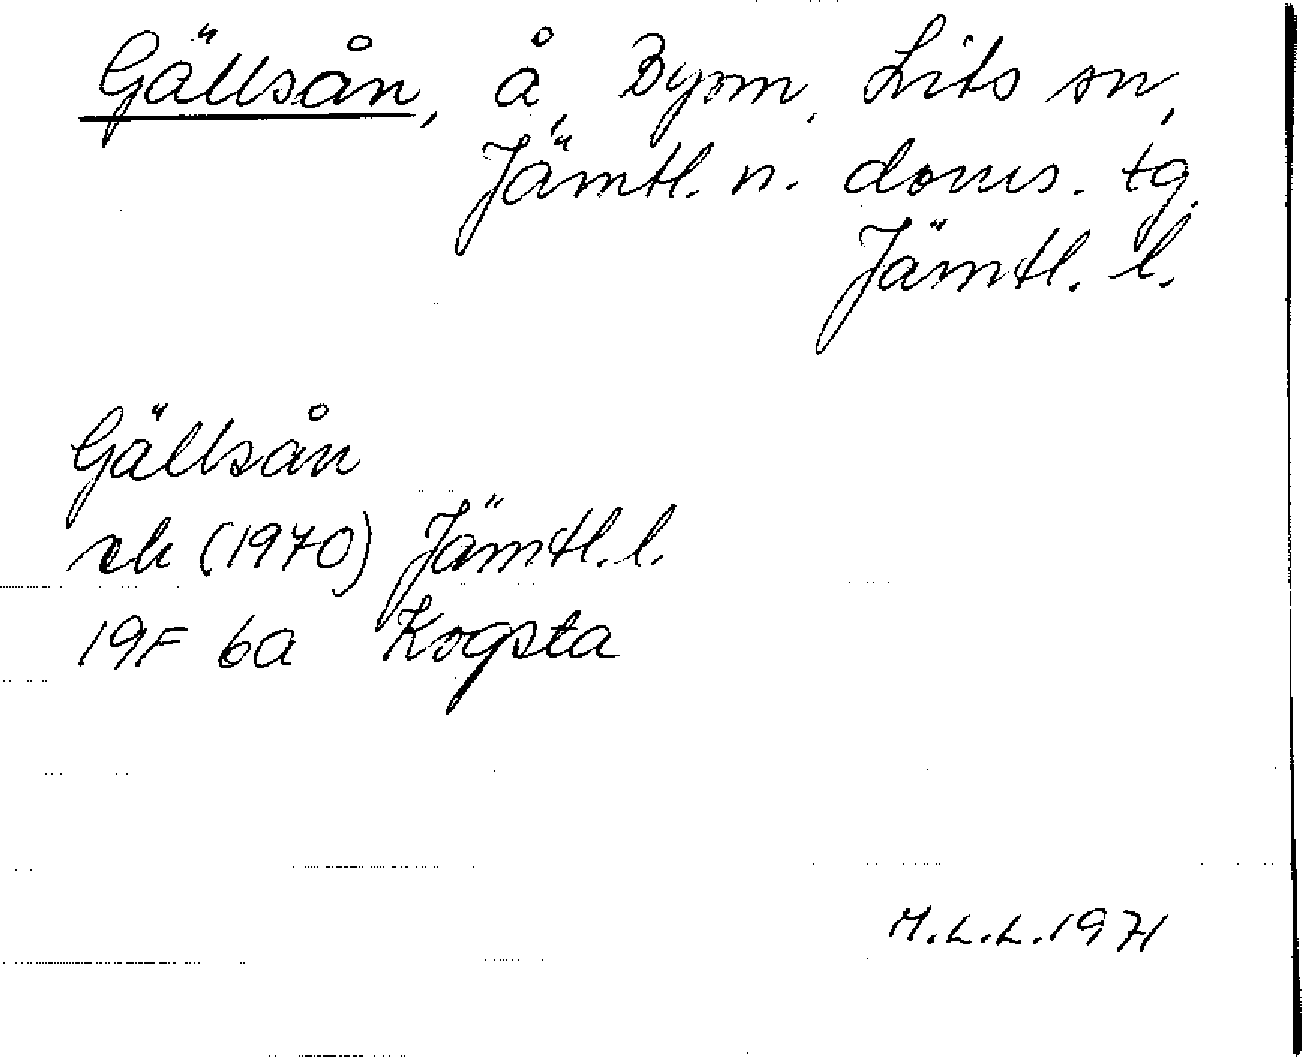 Gällsån, å, Byom, Lits sn,
Jämtl. n. doms. tg.
Jämtl. l.
Gällsån
rek (1970) Jämtl. l.
19F 6a Kogsta
M.L.L. 1971